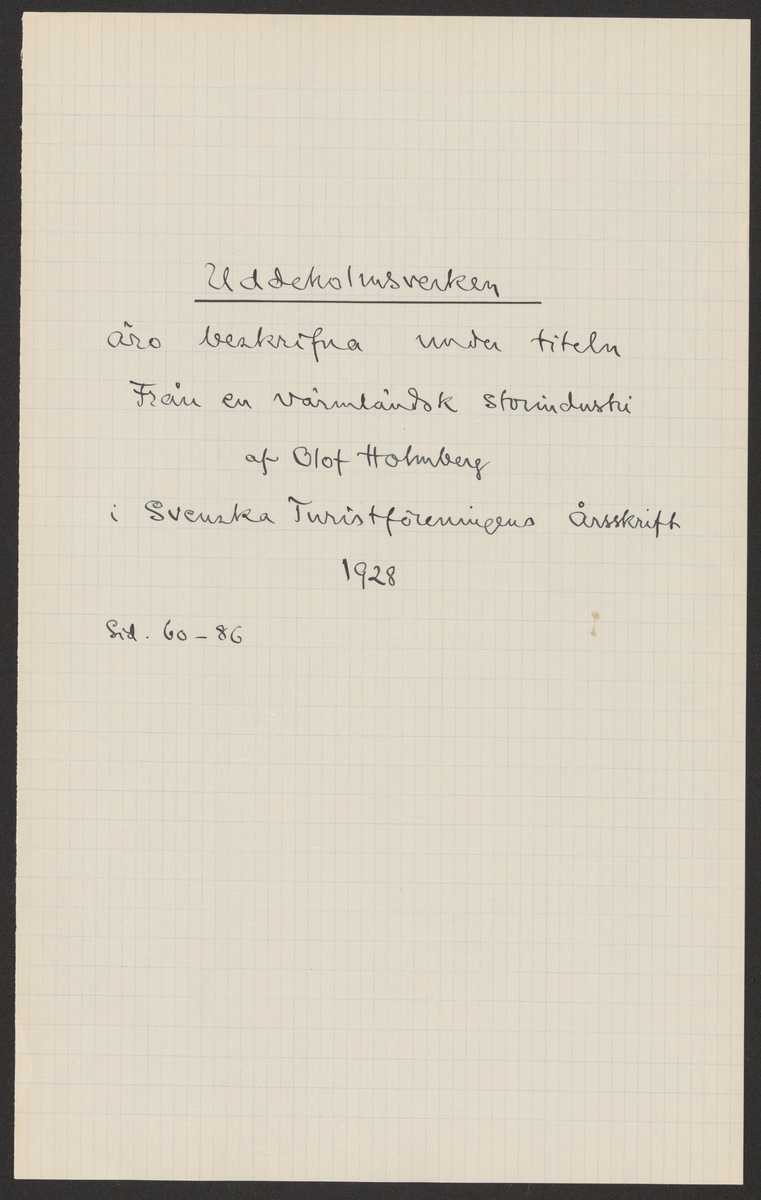 Uddeholmsverken
äro beskrifna under titeln
Från en värmländsk storindustri
af Olof Holmberg
i Svenska Turistföreningens Årsskrift
1928
Sid. 60 – 86